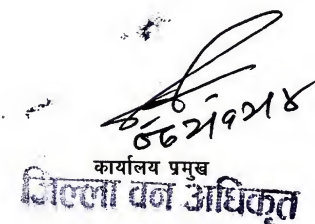 कार्यालय प्रमुख
जिल्ला वन अधिकृत